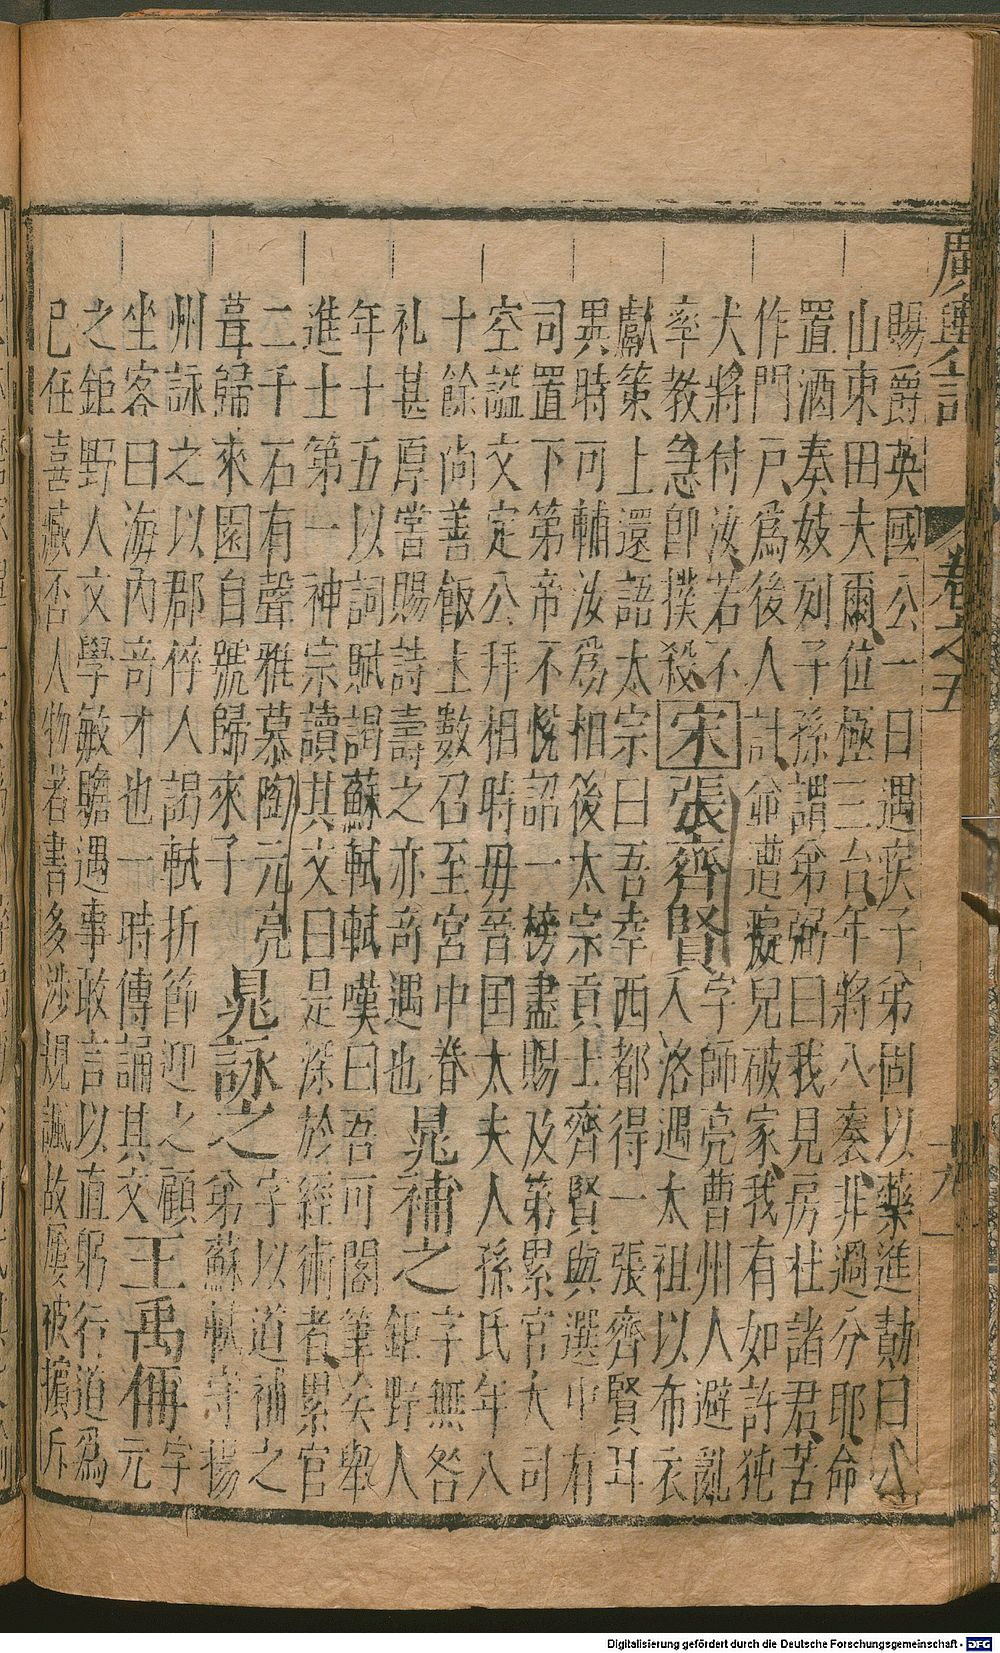 廣輿全記 卷之五 十九
賜爵英國公一日遇疾子弟固以藥進勣曰八
山東田夫爾位極三台年將八袠非過分耶命
置酒奏妓列子孫謂弟弼曰我見房杜諸君苦
作門戶爲後人計並遭癡兒破家我有如許㹠
犬將付汝若不
率教急即撲殺宋張齊賢字師亮曹州人避亂入洛遇太祖以布衣
獻策上還語太宗曰吾幸西都得一張齊賢耳
異時可輔汝爲相後太宗貢士齊賢與選中有
司置下第帝不悅詔一榜盡賜及第累官大司
空謚文定公拜相時毋晉国太夫人孫氏年八
十餘尚善飯上數召至宮中眷
礼甚厚嘗賜詩壽之亦奇遇也晁補之字無咎鉅野人
年十五以詞賦謁蘇軾軾嘆曰吾可閣筆矣舉
進士第一神宗讀其文曰是深於經術者累官
二千石有聲雅慕陶元亮
葺歸來園自號歸來子晁詠之字以道補之弟蘇軾守揚
州詠之以郡倅人謁軾折節迎之顧
坐客曰海內奇才也一時傳誦其文王禹偁字元
之鉅野人文學敏贍遇事敢言以直躬行道爲
己任喜臧否人物著書多涉規諷故屢被擯斥
Digitalisierung gefördert durch die Deutsche Forschungsgemeinschaft - DFG